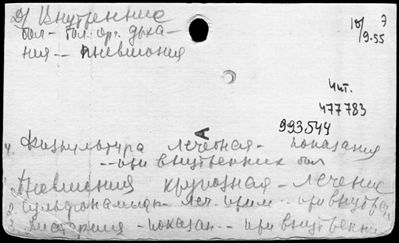 Д/ Внутренние
бол- бол. орг. дыха-
ния -- пневмония
10/9-55
Чит.
477783
993544
А
4. Физкультура лечебная - показания
-- при внутренних бол
1. Пневмония крупозная - лечение
2. Сульфонамид- леч. прим. -- при внутрен
3. - показан -- при внутренни